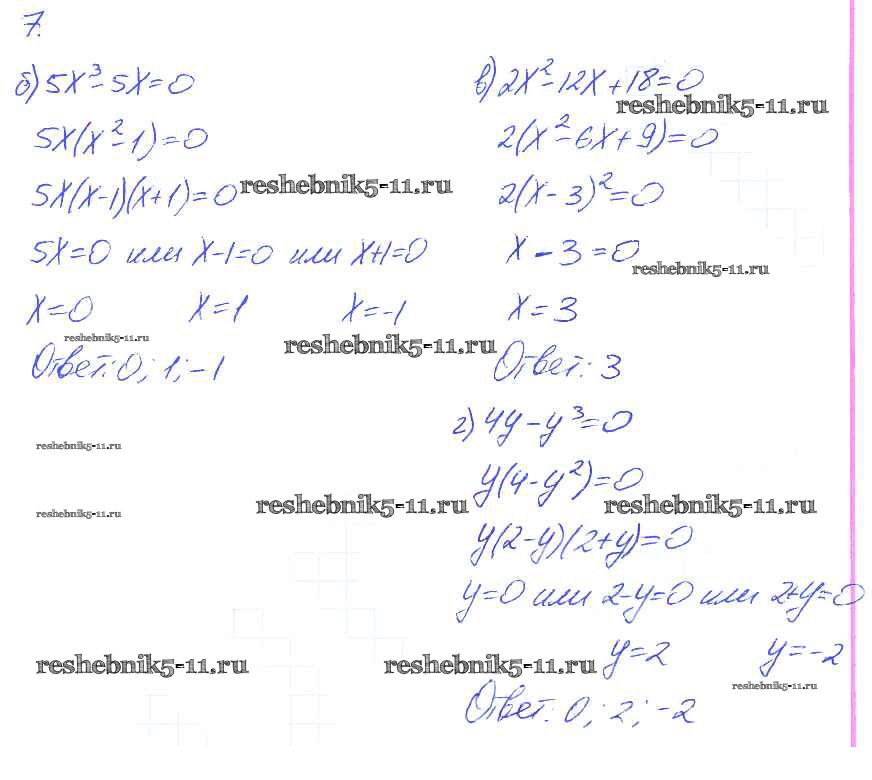 7.
б) 5x³-5x=0
5x(x²-1)=0
5x(x-1)(x+1)=0
5x=0 или x-1=0 или x+1=0
x=0 x=1 x=-1
Ответ: 0; 1; -1
в) 2x²-12x+18=0
2(x²-6x+9)=0
2(x-3)²=0
x-3=0
x=3
Ответ: 3
г) 4y-y³=0
y(4-y²)=0
y(2-y)(2+y)=0
y=0 или 2-y=0 или 2+y=0
y=2 y=-2
Ответ: 0; 2; -2
reshebnik5-11.ru
reshebnik5-11.ru
reshebnik5-11.ru
reshebnik5-11.ru
reshebnik5-11.ru
reshebnik5-11.ru
reshebnik5-11.ru
reshebnik5-11.ru
reshebnik5-11.ru
reshebnik5-11.ru
reshebnik5-11.ru
reshebnik5-11.ru